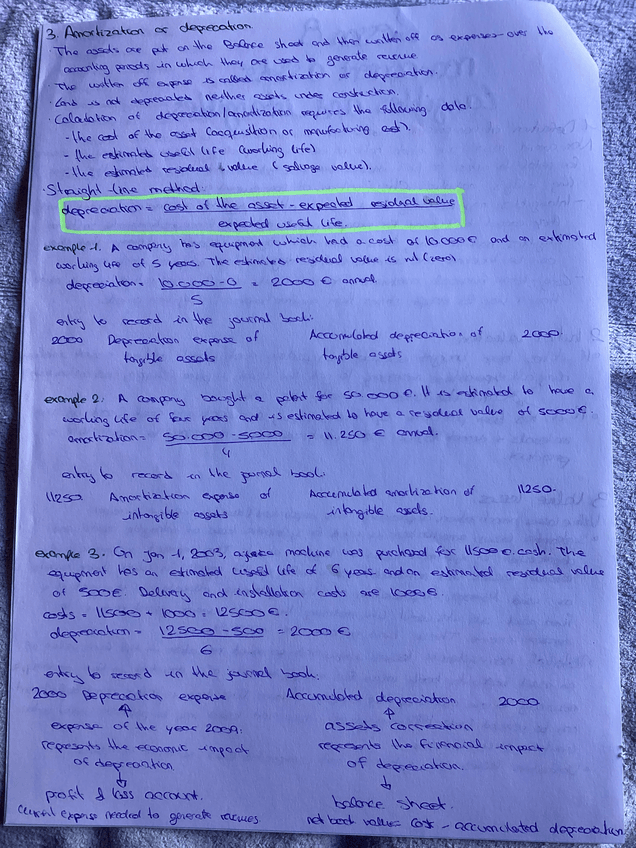 3. Amortization or deprecation.
The assets are put on the Balance sheet and then written off as expenses over the
accounting periods in which they are used to generate revenue
The written off expense is called amortization or depreciation.
· Land is not depreciated neither assets under construction.
· Calculation of depreciation/amortization requires the following data.
- the cost of the asset (acquisition or manufacturing cost).
- the estimated useful life (working life)
- the estimated residual value (salvage value).
· Straight-line method:
depreciation = cost of the asset - expected residual value
expected useful life.
example 1. A company has equipment which had a cost of 10.000€ and an estimated
working life of 5 years. The estimated residual value is nil (zero)
depreciation = 10.000-0 = 2000 € annual
5
entry to record in the journal book:
2000 Depreciation expense of Accumulated depreciation of 2000
tangible assets tangible assets
example 2. A company bought a patent for 50.000€. It is estimated to have a
working life of four years and is estimated to have a residual value of 5000€.
amortization = 50.000-5000 = 11.250 € annual.
4
entry to record in the journal book:
11250 Amortization expense of Accumulated amortization of 11250.
intangible assets intangible assets.
example 3. On Jan-1, 2003, machine was purchased for 11500€ cash. The
equipment has an estimated useful life of 6 years and an estimated residual value
of 500€. Delivery and installation costs are 1000€.
costs = 11500 + 1000 = 12500€.
depreciation = 12500-500 = 2000€
6
entry to record in the journal book.
2000 Depreciation expense Accumulated depreciation 2000
expense of the year assets correction
represents the economic impact represents the financial impact
of depreciation of depreciation.
profit & loss account. balance sheet.
expense needed to generate revenues net book value = cost - accumulated depreciation